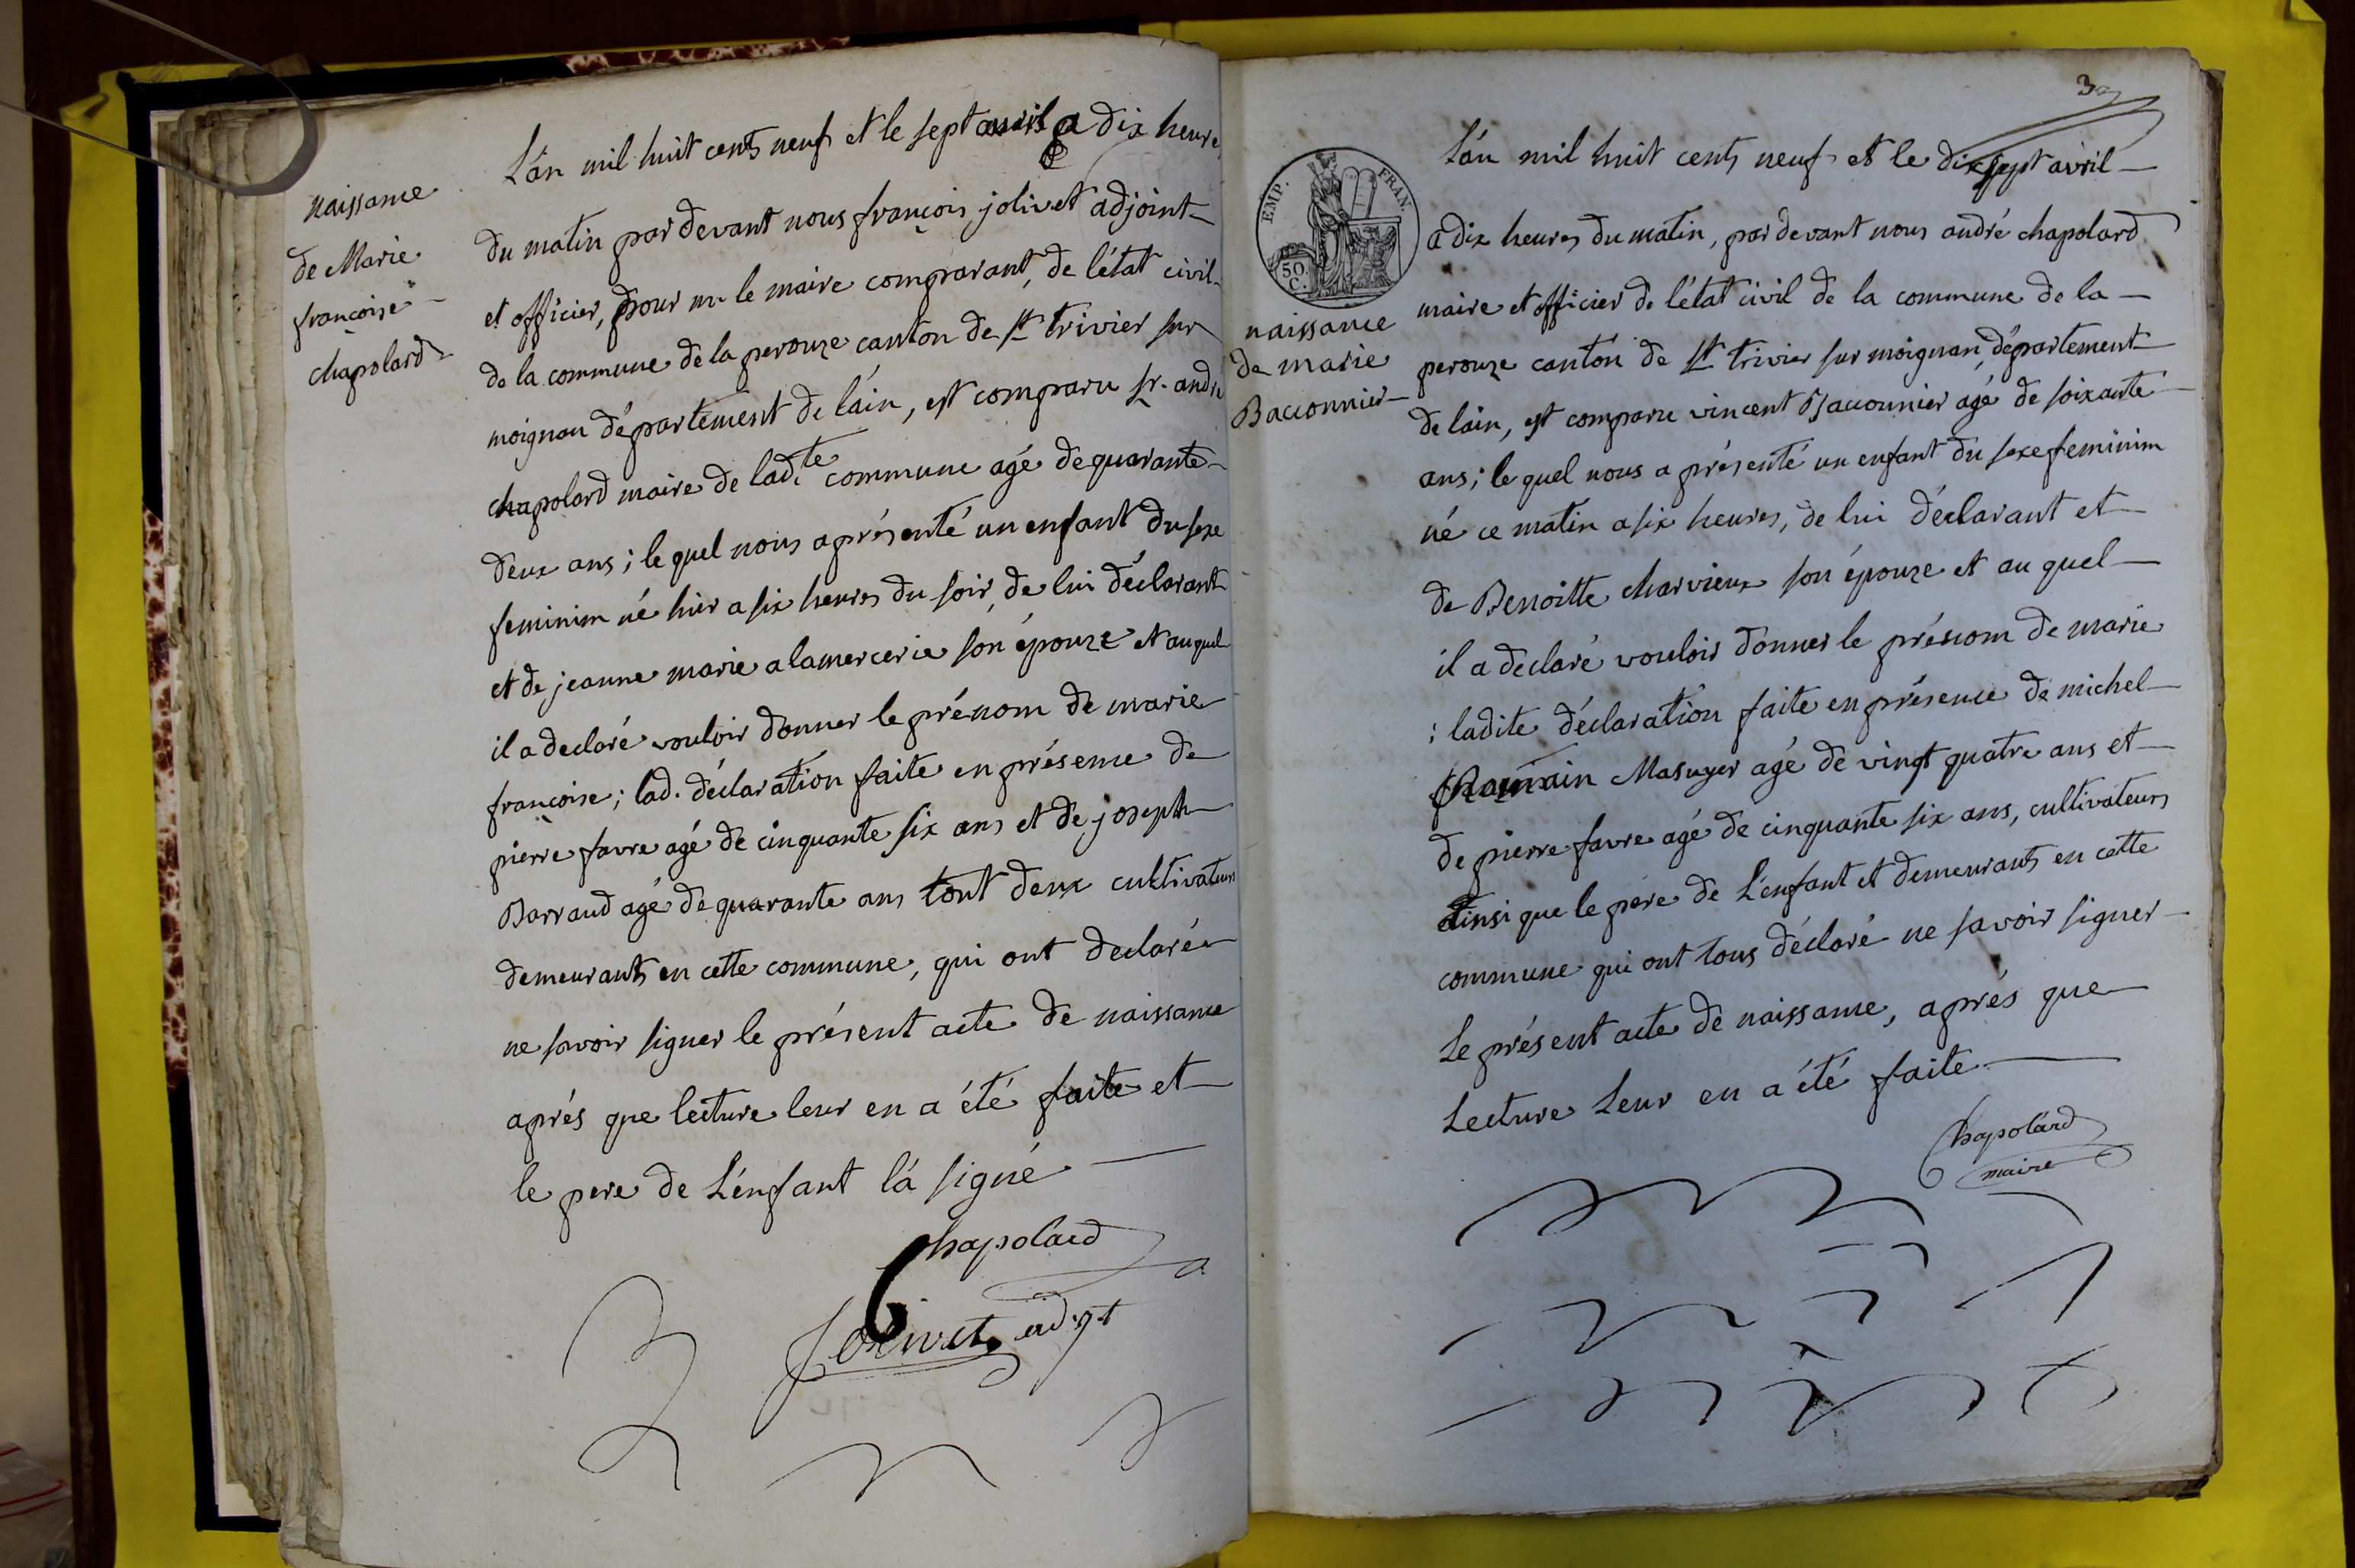 naissance
de Marie
françoise
chapolard
L'án mil huit cents neuf et le sept avril a dix heures
du matin par devant nous françois jolivet adjoint
et officier, pour mr. le maire comparant, de l'état civil
de la commune de la perouze canton de st trivier sur
moignan département de l'ain, est comparu sr. andré
chapolard maire de ladte commune agé de quarante
deux ans; le quel nous a présenté un enfant du sexe
feminim né hier a six heures du soir, de lui déclarant
et de jeanne marie alamercerie son épouze et auquel
il a declaré vouloir donner le prénom de marie
françoise; lad. déclaration faite en présence de
pierre favre agé de cinquante six ans et de joseph
Barraud agé de quarante ans tout deux cultivateurs
demeurants en cette commune, qui ont declaré
ne savoir signer le présent acte de naissance
aprés que lecture leur en a été faite et
le pere de L'énfant l'á signé
Chapolard
Jolivet adjt
3
EMP. FRAN.
50.
C.
naissance
de marie
Bacconnier
L'án mil huit cents neuf et le dix sept avril
a dix heures du matin, par devant nous andré chapolard
maire et officier de l'état civil de la commune de la
perouze canton de st trivier sur moignan, département
de l'ain, est comparu vincent Bacconnier agé de soixante
ans; le quel nous a présenté un enfant du sexe feminim
né ce matin a six heures, de lui déclarant et
de Benoitte charvieux son épouze et au quel
il a declaré vouloir donner le prénom de marie
; ladite déclaration faite en présence de michel
Romain Masuyer agé de vingt quatre ans et
de pierre favre agé de cinquante six ans, cultivateurs
ainsi que le pere de L'énfant et demeurants en cette
commune qui ont tous déclaré ne savoir signer
Le présent acte de naissance, aprés que
Lecture Leur en a été faite
Chapolard
maire